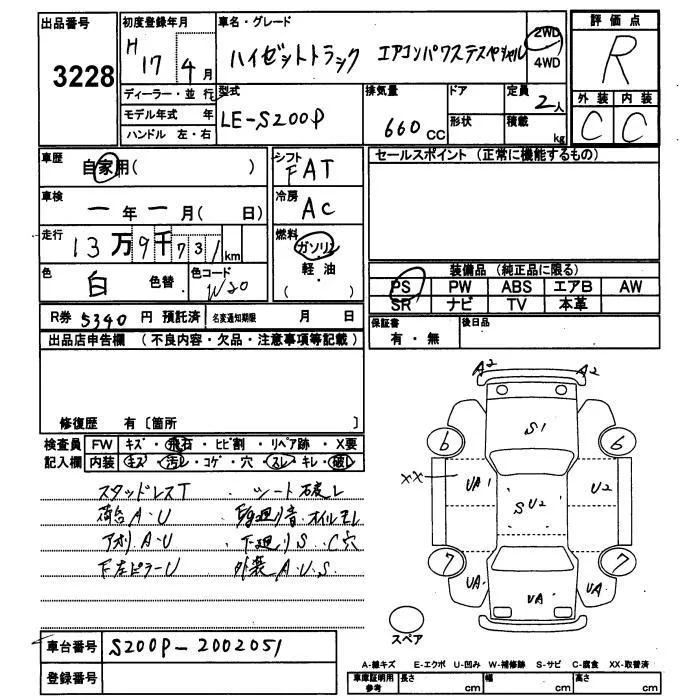 出品番号
3228
初度登録年月
H 17年 4月
車名・グレード
ハイゼットトラック エアコンパワステスペシャル
2WD
4WD
評価点
R
外装 内装
C C
ディーラー・並行
モデル年式 年
ハンドル 左・右
型式
LE-S200P
排気量
660 CC
ドア
形状
定員
2人
積載
kg
車歴
自家用( )
車検
ー年ー月( 日)
走行
13万9千731km
色
白
色替
色コード
W20
シフト
FAT
冷房
AC
燃料
ガソリン
軽・油
( )
セールスポイント (正常に機能するもの)
装備品 (純正品に限る)
PS PW ABS エアB AW
SR ナビ TV 本革
R券 5340 円 預託済 名変通知期限 月 日
保証書
有・無
後日品
出品店申告欄 (不良内容・欠品・注意事項等記載)
修復歴 有〔箇所 〕
検査員
記入欄
FW キズ・飛石・ヒビ割・リペア跡・X要
内装 キズ・汚レ・コゲ・穴・スレ・キレ・破レ
スタッドレスT シート破レ
荷台A・U オイルモレ
アオリA・U 下廻りS・C穴
下左ピラーU 外装A・U・S
A2 A2
S1
6 6
XX
UA1
SU2
U2
7 7
UA
UA
UA
スペア
車台番号
S200P-2002051
登録番号
A-線キズ E-エクボ U-凹み W-補修跡 S-サビ C-腐食 XX-取替済
車庫証明用
参考
長さ cm
幅 cm
高さ cm